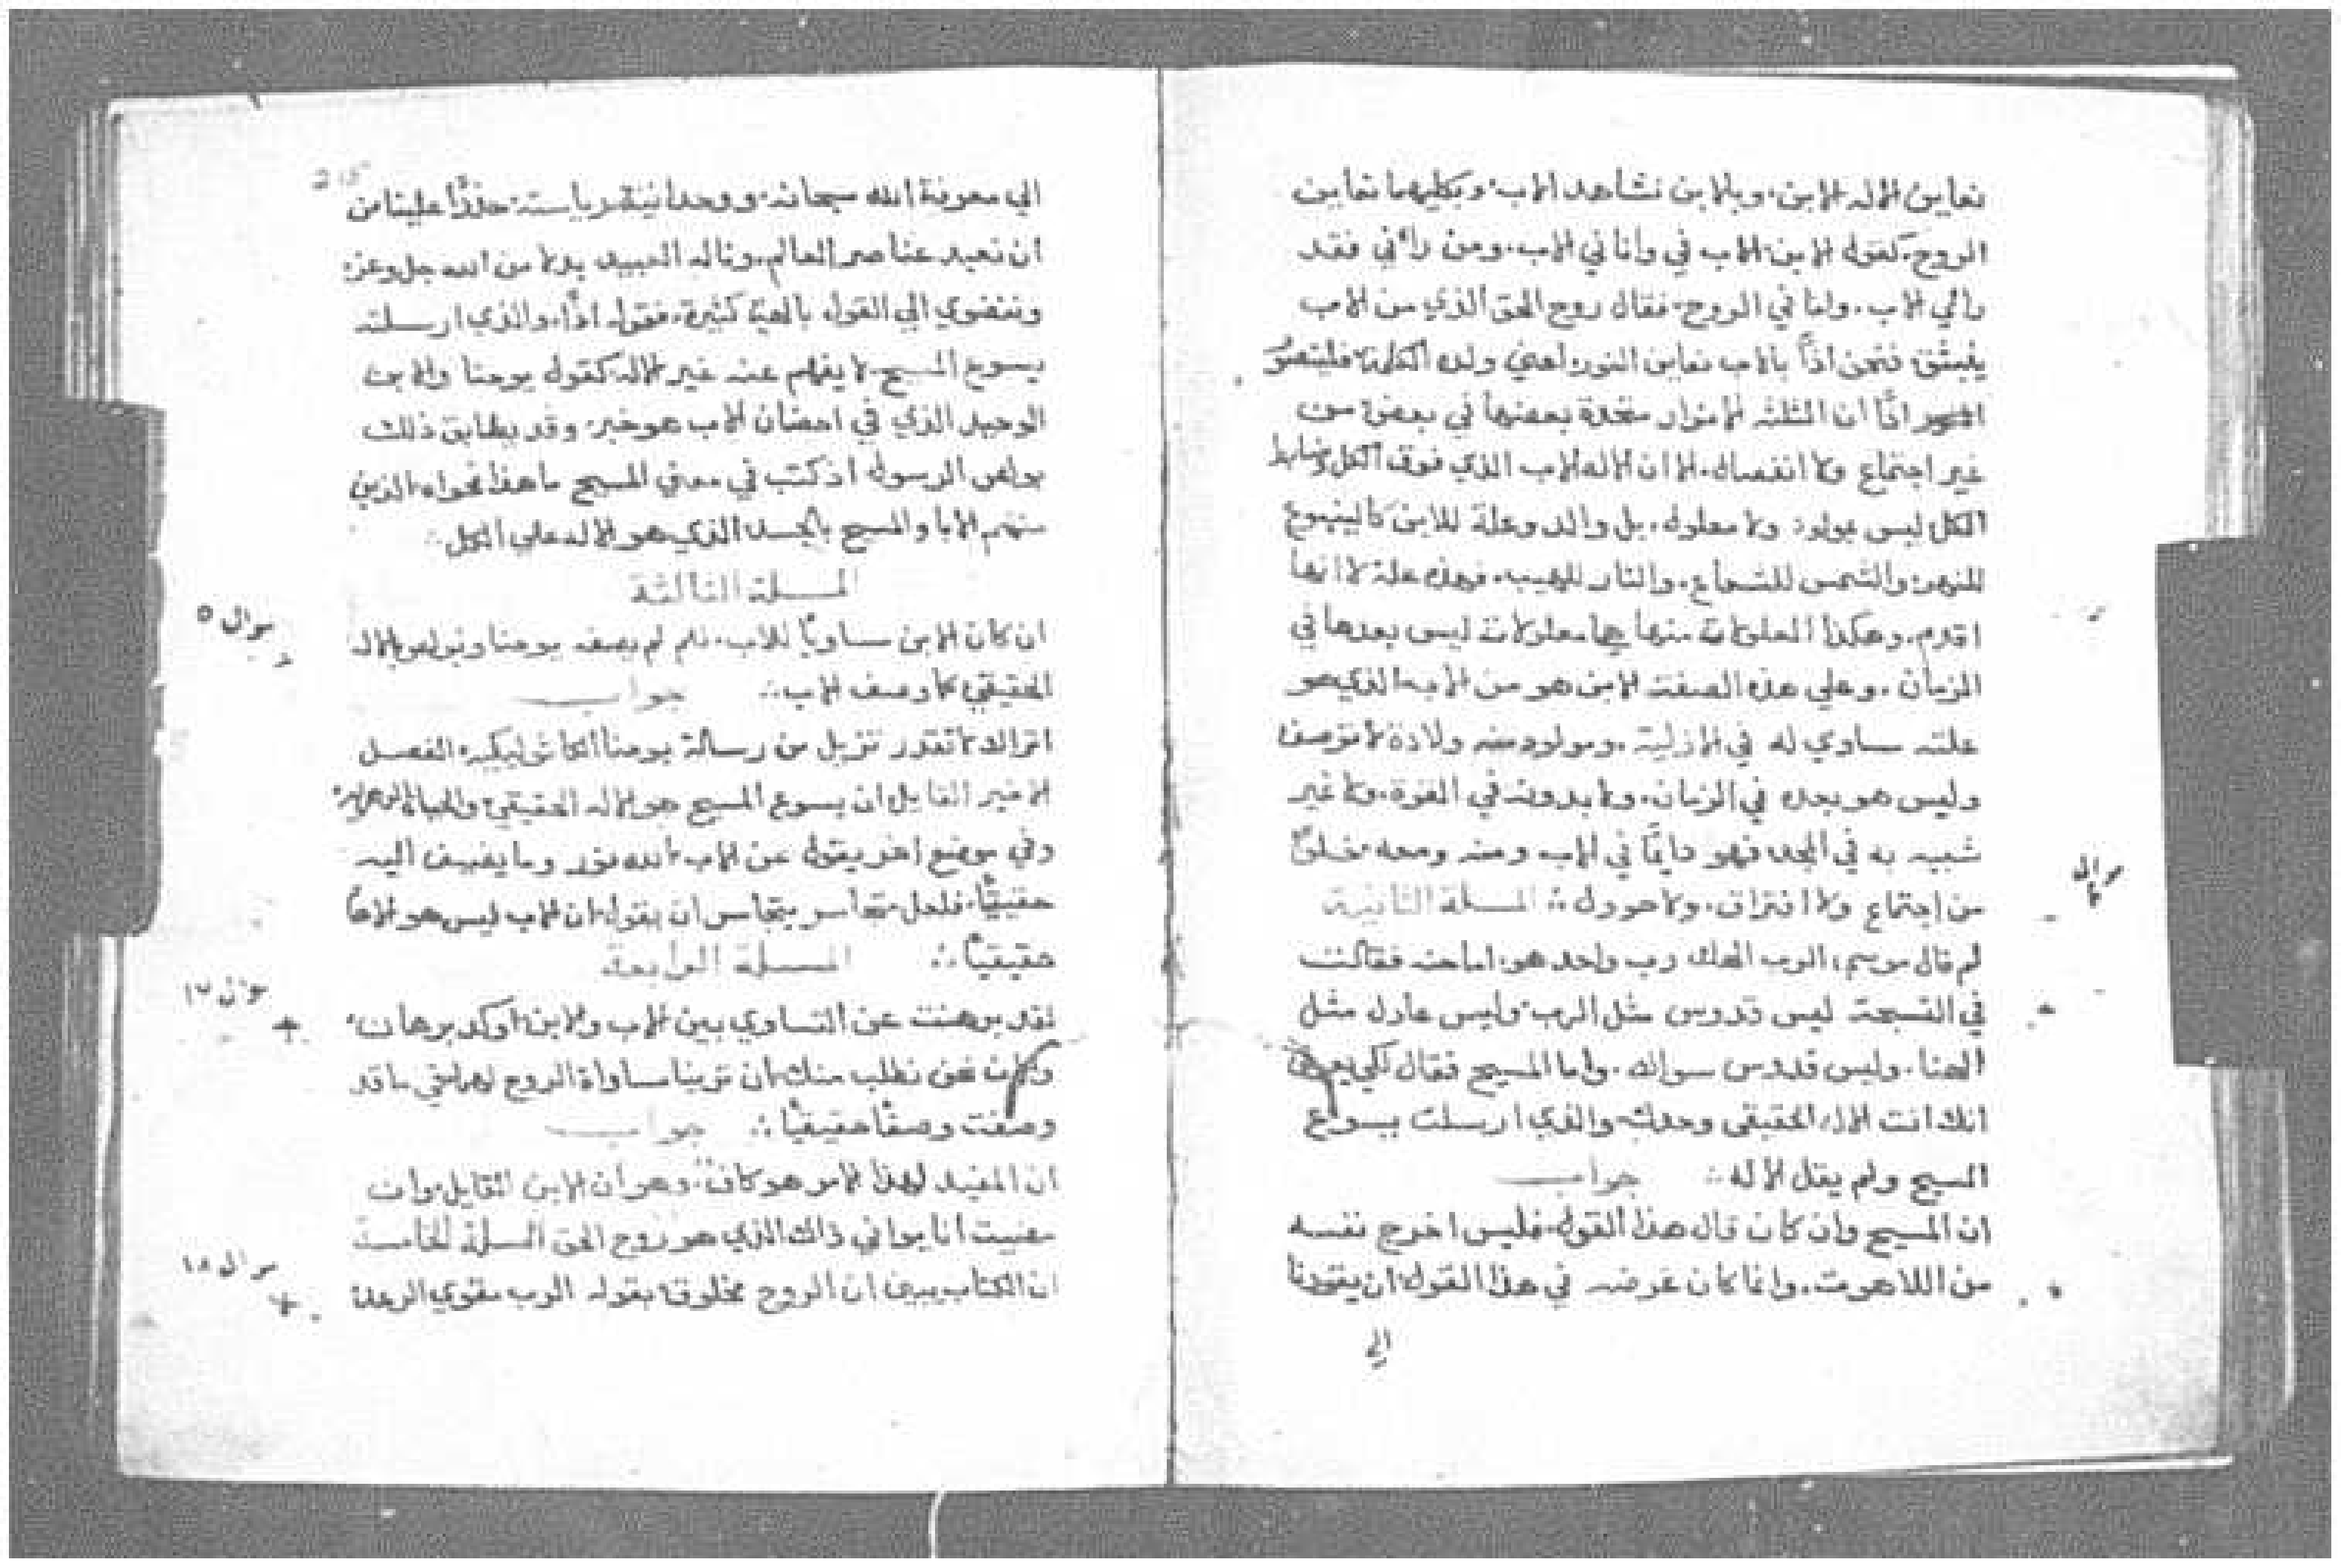 نعاين الاله الابن، وبالابن نشاهد الاب، وبكليهما نعاين
الروح. كقوله الابن الاب في وانا في الاب. ومن رأني فقد
راي الاب. واما في الروح، فقال روح الحق الذي من الاب
ينبثق، فنحن اذاً بالاب نعاين النور، اعني ولده الكلمة
اذاً ان الثلثه الانوار متحدة بعضها في بعض، من
غير اجتماع ولا انفصال. الا ان الاله الاب الذي فوق الكل وضابط
الكل ليس مولود ولا معلول. بل والد وعلة للابن كالينبوع
للنهر، والشمس للشعاع. والنار للهيب. فهذه علة لا انها
اقدم. وهكذا المعلولات منها بما معلولات ليس بعدها في
الزمان. وعلي هذه الصفة الابن هو من الاب الذي هو
علته مساوي له في الازلية. ومولود منه ولادة لا توصف
وليس هو بعده في الزمان. ولا بدونه في القوة. ولا غير
شبيه به في المجد، فهو دايمًا في الاب ومنه ومعه
من اجتماع ولا افتراق. ولا حوول ∴ المسلة الثانية
لم قال موسي، الرب الهك رب واحد هو، اما حنه فقالت
في التسبحة ليس قدوس مثل الرب، وليس عادل مثل
الهنا. وليس قدوس سواك. واما المسيح فقال لكي
انك انت الاله الحقيقي وحدك، والذي ارسلت يسوع
المسيح ولم يقل الاله ∴ جواب
ان المسيح وان كان قال هذا القول، فليس اخرج نفسه
من اللاهوت. وانما كان غرضه في هذا القول ان يقودنا
الي
سوال
الي معرفة الله سبحانه، ووحدانية رياسته، حذرًا علينا من
ان نعبد عناصر العالم. ونأله العبيد بدلا من الله جل وعز،
ونغضوي الي القول بالهة كثيرة. فقوله اذًا، والذي ارسلته
يسوع المسيح، لا يفهم عنه غير الاله كقول يوحنا والابن
الوحيد الذي في احضان الاب هو خبر، وقد يطابق ذلك
بولص الرسول اذ كتب في معني المسيح ما هذا فحواه، الذين
منهم الابا والمسيح بالجسد الذي هو الاله علي الكل ∴
المسلة الثالثة
ان كان الابن مساويًا للاب. فلم لم يصف يوحنا وبولص بالاله
الحقيقي كما وصف الاب ∴ جواب
اتراك لا تقدر تزيل من رسالة يوحنا الكاتوليكيه، الفصل
الاخير القايل ان يسوع المسيح هو الاله الحقيقي، والحياة
وفي موضع اخر يقول عن الاب انه نور وما يضيف اليه
حقيقيًا. فلعل متجاسر يتجاسر ان يقول ان الاب ليس هو الاهًا
حقيقيًا ∴ المسلة الرابعة
لقد برهنت عن التساوي بين الاب والابن، اوكد برهان،
نحن نطلب منك ان ترينا مساواة الروح لهما في ما قد
وصفت وصفًا حقيقيًا ∴ جواب
ان المفيد لهذا الامر هو كاف، وهو ان الابن القايل، وان
مضيت انا يواني ذاك الذي هو روح الحق المسلة الخامسة
ان الكتاب يبين ان الروح مخلوق، بقوله الرب مقوي الرعدة
سوال ٥
سوال
سوال ١٨